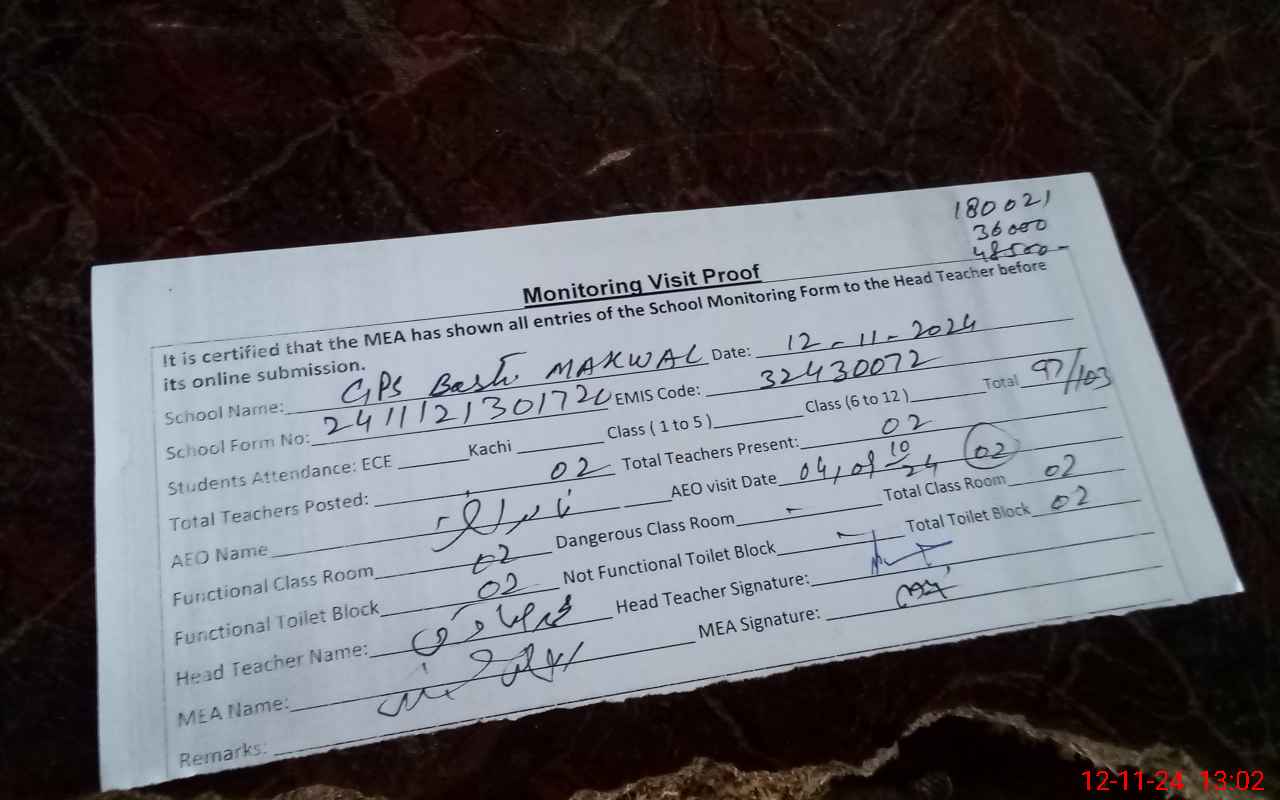 180021
36000
48500-
Monitoring Visit Proof
It is certified that the MEA has shown all entries of the School Monitoring Form to the Head Teacher before
its online submission.
School Name: GPS Basti MAKWAL Date: 12-11-2024
School Form No: 2411121301720 EMIS Code: 32430072
Students Attendance: ECE Kachi Class (1 to 5) Class (6 to 12) Total 97/103
Total Teachers Posted: 02 Total Teachers Present: 02
AEO Name AEO visit Date 02
Functional Class Room 02 Dangerous Class Room - Total Class Room 02
Functional Toilet Block 02 Not Functional Toilet Block - Total Toilet Block 02
Head Teacher Name: Head Teacher Signature:
MEA Name: MEA Signature:
Remarks:
12-11-24 13:02